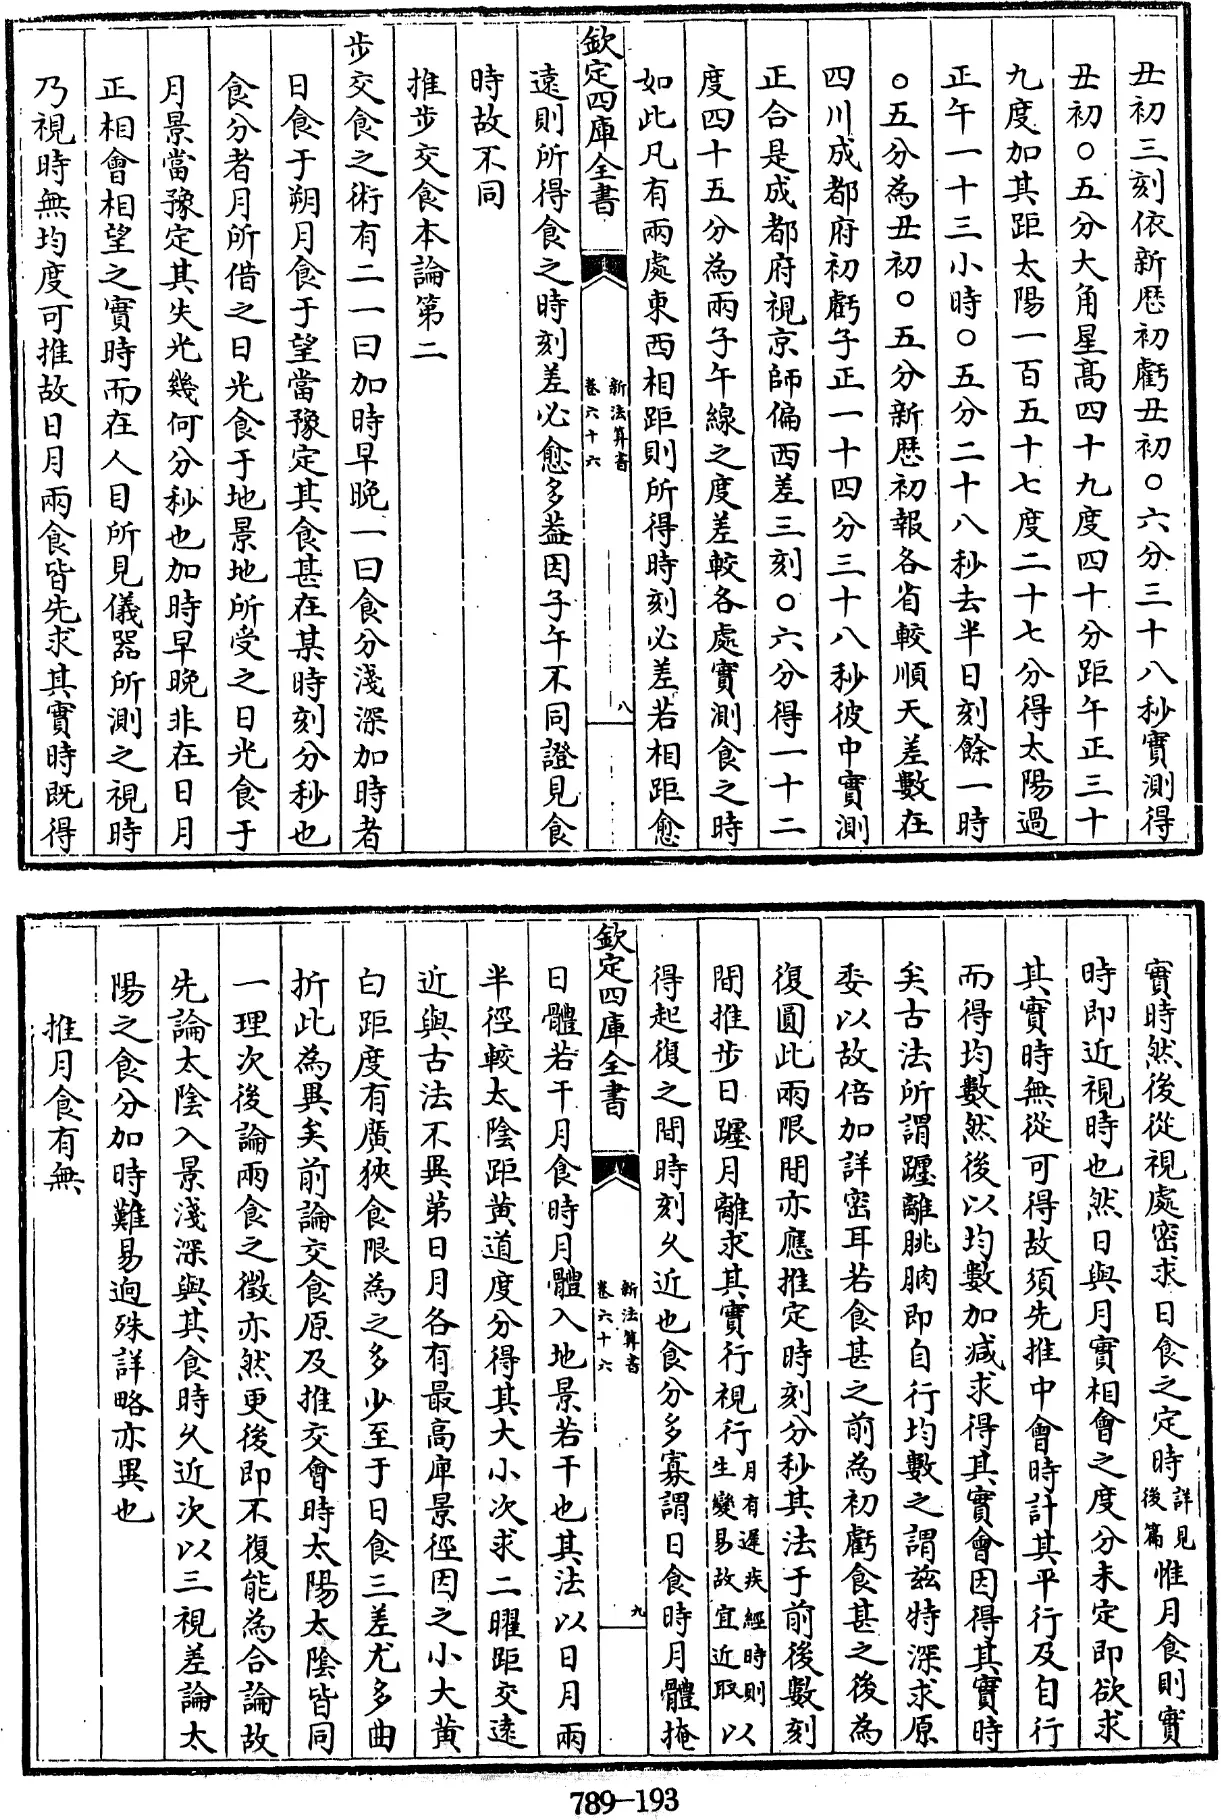 丑初三刻依新厯初虧丑初〇六分三十八秒實測得
丑初〇五分大角星髙四十九度四十分距午正三十
九度加其距太陽一百五十七度二十七分得太陽過
正午一十三小時〇五分二十八秒去半日刻餘一時
〇五分為丑初〇五分新厯初報各省較順天差數在
四川成都府初虧子正一十四分三十八秒彼中實測
正合是成都府視京師偏西差三刻〇六分得一十二
度四十五分為兩子午線之度差較各處實測食之時
如此凡有兩處東西相距則所得時刻必差若相距愈
欽定四庫全書
新法算書
卷六十六
八
遠則所得食之時刻差必愈多葢因子午不同證見食
時故不同
推步交食本論第二
步交食之術有二一曰加時早晚一曰食分淺深加時者
日食于朔月食于望當豫定其食甚在某時刻分秒也
食分者月所借之日光食于地景地所受之日光食于
月景當豫定其失光幾何分秒也加時早晚非在日月
正相會相望之實時而在人目所見儀器所測之視時
乃視時無均度可推故日月兩食皆先求其實時既得
實時然後從視處密求日食之定時詳見後篇惟月食則實
時即近視時也然日與月實相會之度分未定即欲求
其實時無從可得故須先推中會時計其平行及自行
而得均數然後以均數加減求得其實會因得其實時
矣古法所謂躔離朓朒即自行均數之謂兹特深求原
委以故倍加詳密耳若食甚之前為初虧食甚之後為
復圓此兩限間亦應推定時刻分秒其法于前後數刻
間推步日躔月離求其實行視行月有遲疾經時則生變易故宜近取以
得起復之間時刻久近也食分多寡謂日食時月體掩
欽定四庫全書
新法算書
卷六十六
九
日體若干月食時月體入地景若干也其法以日月兩
半徑較太陰距黄道度分得其大小次求二曜距交遠
近與古法不異第日月各有最高庳景徑因之小大黄
白距度有廣狹食限為之多少至于日食三差尤多曲
折此為異矣前論交食原及推交會時太陽太陰皆同
一理次後論兩食之徵亦然更後即不復能為合論故
先論太陰入景淺深與其食時久近次以三視差論太
陽之食分加時難易逈殊詳略亦異也
推月食有無
789—193